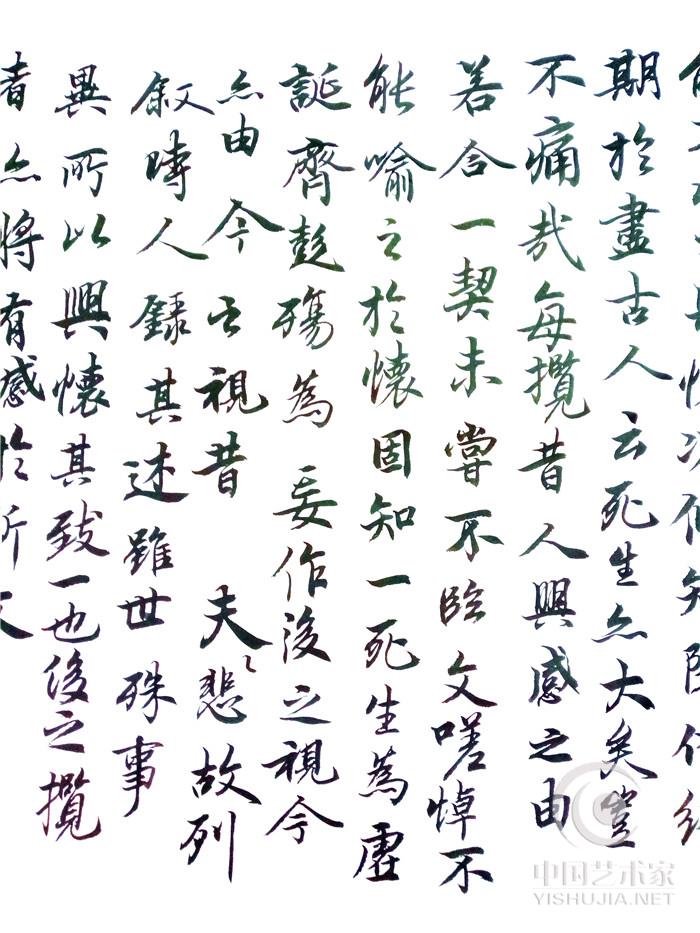 期於盡古人云死生亦大矣豈
不痛哉每攬昔人興感之由
若合一契未嘗不臨文嗟悼不
能喻之於懷固知一死生為虛
誕齊彭殤為妄作後之視今
亦由今之視昔夫悲故列
叙時人錄其述雖世殊事
異所以興懷其致一也後之攬
者亦将有感於斯文
中国艺术家
YISHUJIA.NET